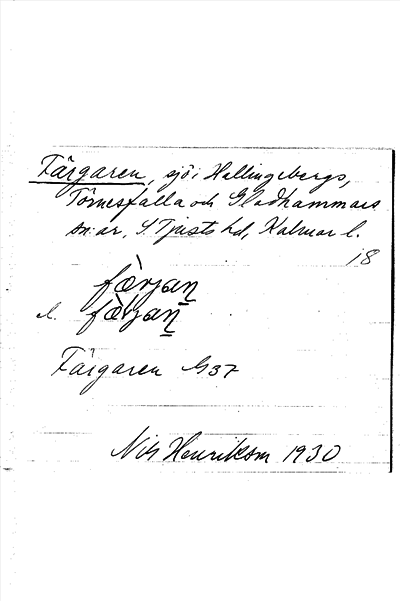 Färgaren, sjö i Hallingebergs,
Törnesfalla och Gladhammars
sn:ar, S. Tjusts hd, Kalmar l.
18
fæ̀rjan̲
l. fæ̀rjan̲
Färgaren G37
Nils Henrikson 1930